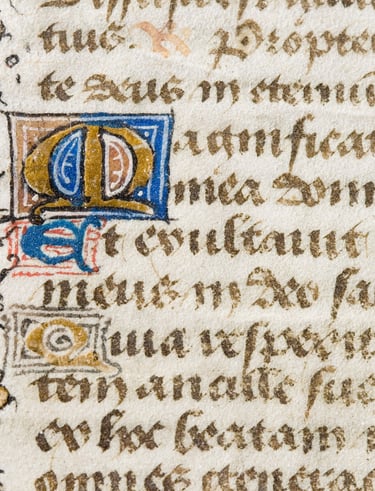 tuus. Propte
te deus in eternu
Magnificat
mea domi
Et exultauit
meus in deo sa
Quia respexit
tem ancille sue
ex hoc beatam
omnes genera